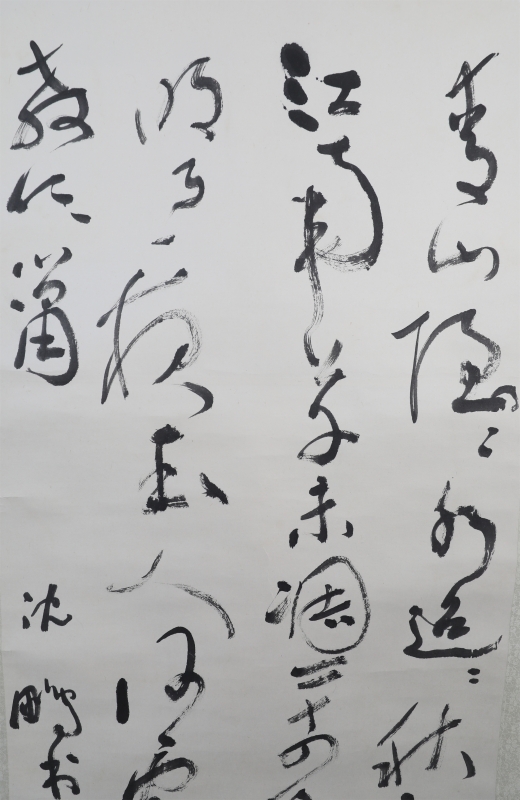 青山隐々水迢々秋
江南草未凋二十四
明月夜玉人何处
教吹箫
沈鹏书